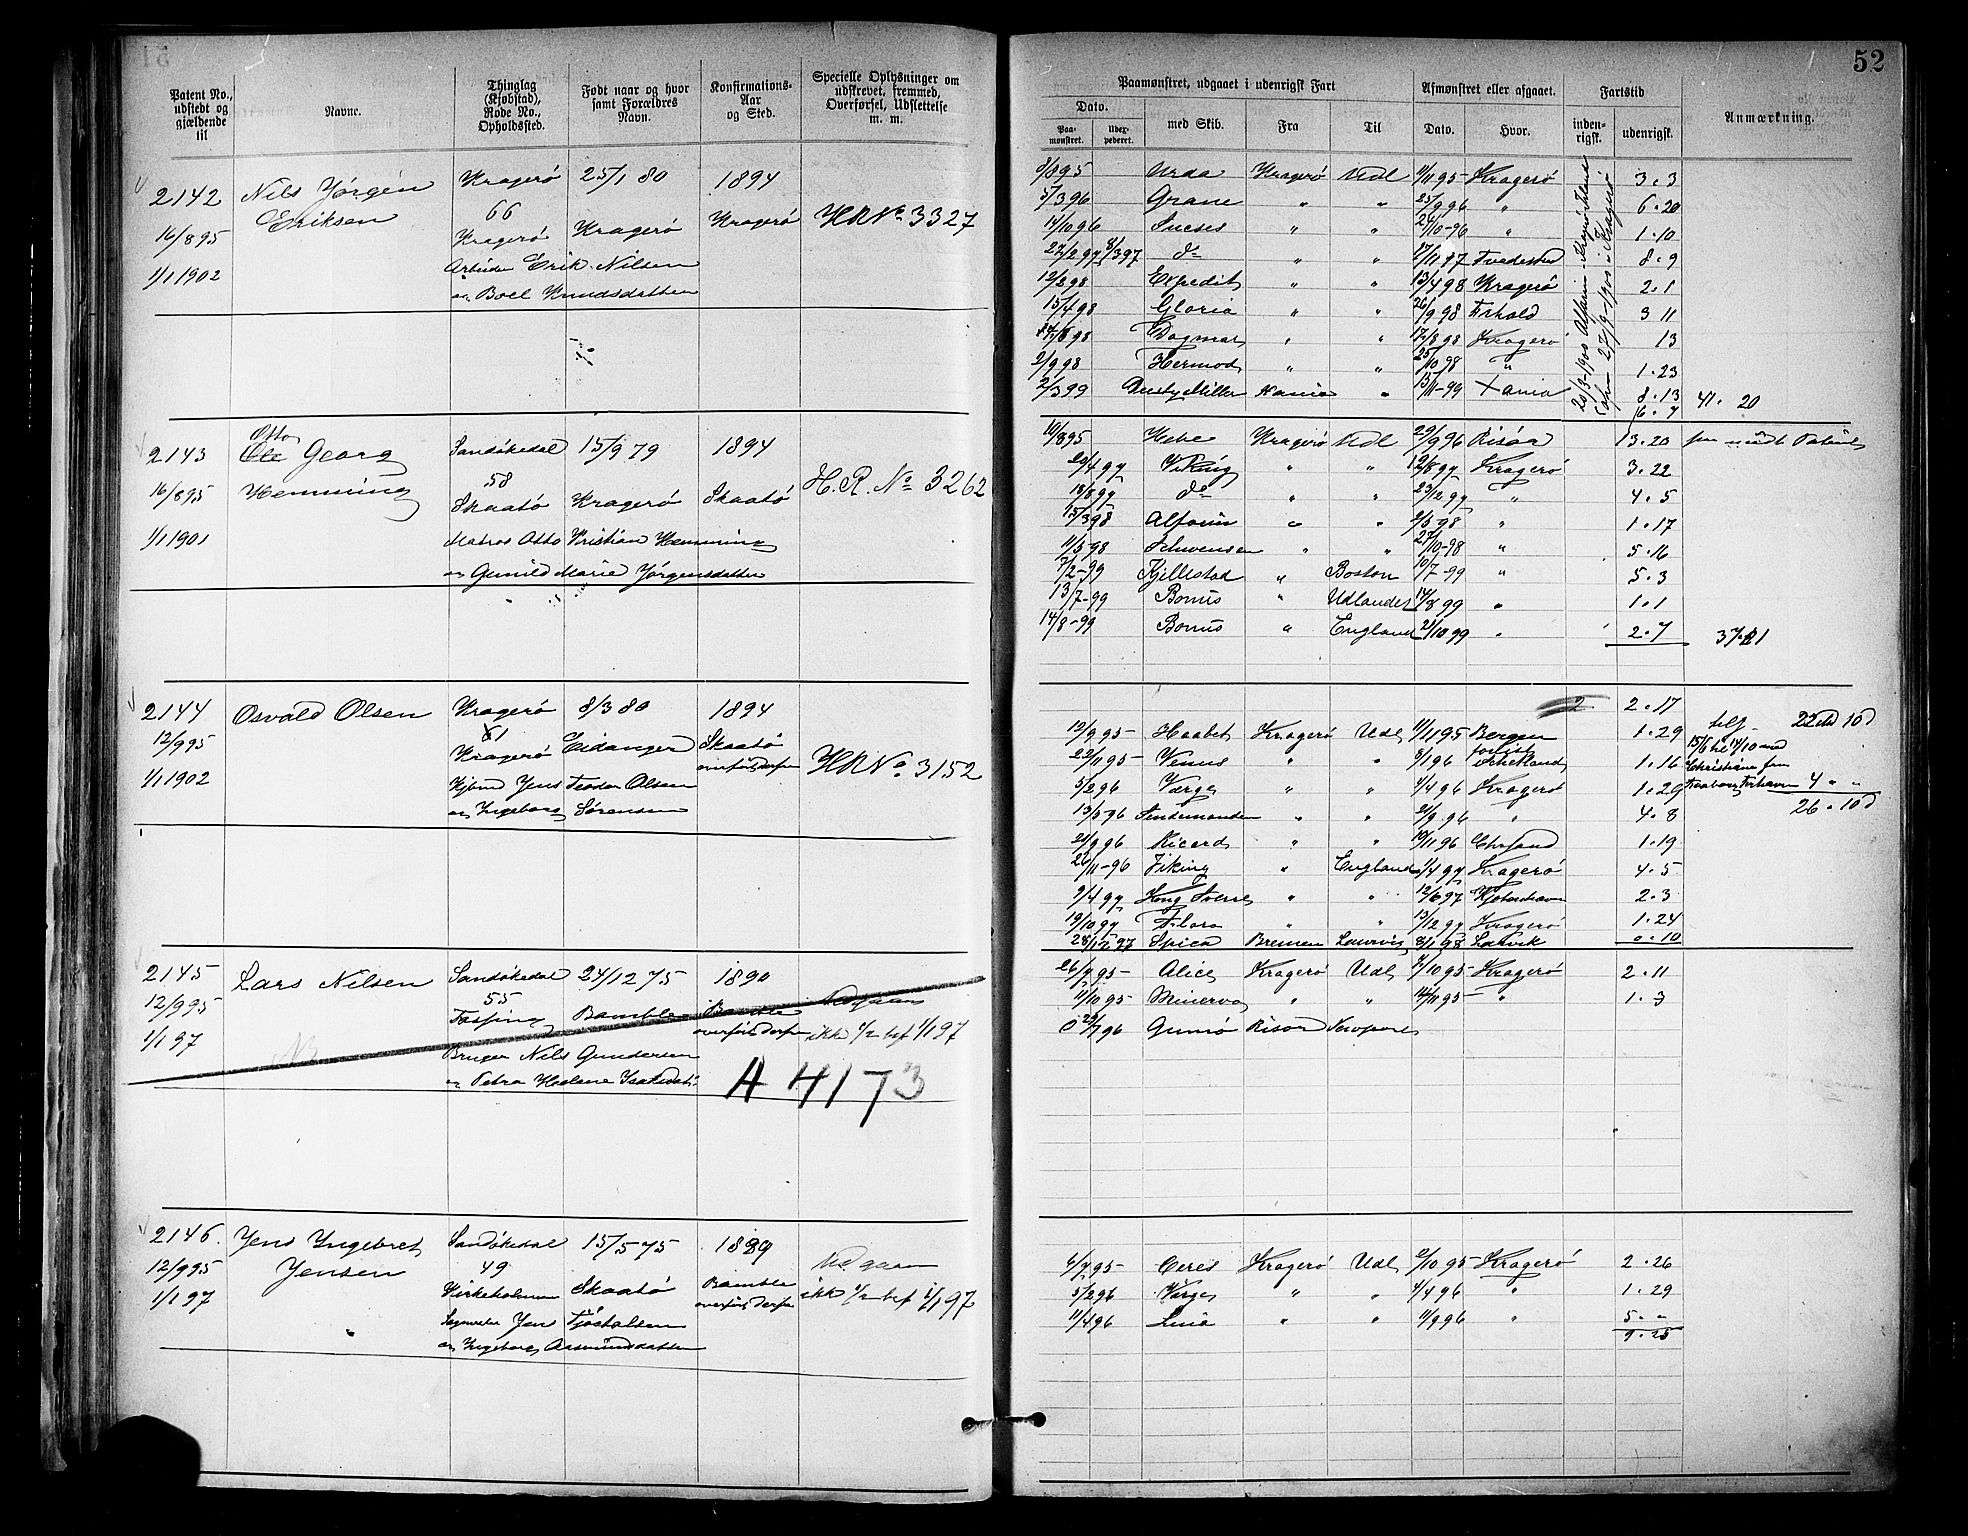 52
Patent No., udstedt og gjældende til
Navne.
Thinglag (Kjøbstad), Rode No., Opholdssted.
Født naar og hvor samt Forældres Navn.
Konfirmations-Aar og Sted.
Specielle Oplysninger om udskrevet, fremmed, Overførsel, Udslettelse m. m.
Paamønstret, udgaaet i udenrigsk Fart
Afmønstret eller afgaaet.
Fartstid
Anmærkning.
Dato.
Paa-mønstret.
Udex-pederet.
med Skib.
Fra
Til
Dato.
Hvor.
inden-rigsk.
udenrigsk.
2142 Nils Jørgen Kragerø 25/1 80 1894
Eriksen 66
16/8 95 Kragerø Kragerø Kragerø HR No 3327
1/1 1902 Arbeider Erik Nilsen
og Boel Knudsdatter
2143 Otto Ole Georg Sandøkedal 15/9 79 1894
16/8 95 Hemming 58 Skaatø Kragerø Skaatø H.R. No 3262
1/1 1901 Matros Otto Kristian Hemming
og Gunild Marie Jørgensdatter
2144 Osvald Olsen Kragerø 8/3 80 1894
12/9 95 61 Kragerø Eidanger Skaatø
overført derfra HR No 3152
1/1 1902 Kjbmd Jens Teodor Olsen
og Ingeborg Sørensen
2145 Lars Nilsen Sandøkedal 24/12 75 1890
12/9 95 55 Bamble Bamble Udgaar
1/1 97 overført derfra ikke 1/2 bef 1/1 97
Bruger Nils Gundersen
og Petra Helene Isaksdat.
A 4173
2146. Jens Ingebret Sandøkedal 15/5 75 1889
12/9 95 Jensen 49 Udgaar
1/1 97 Kirkeholmen Skaatø Bamble
overført derfra ikke 1/2 bef 1/1 97
Jens Tjøstolsen
og Ingeborg Aasmundsdatter
8/8 95 Urda Kragerø Udl 1/11 95 Kragerø 3.3
5/3 96 Grane " " 25/9 96 " 6.20
14/10 96 Sucses " " 24/10-96 " 1.10
22/2 97 8/3 97 do " " Tvedestrd 8.9
12/2 98 Expedit " " 13/4 98 Kragerø 2.1
15/4 98 Gloria " " 26/9 98 3 11
Dagmar " " 17/8 98 Kragerø 13
2/9 98 Hermod " " 25/10 98 " 1.23
2/3 99 Dusty Miller Kania " 13/11-99 Xania 8.13
6.7 41. 20
19/8 95 Hebe Kragerø Udl 29/9 96 Risøer 13.20
20/4 97 Viking " " 12/8 97 Kragerø 3.22
18/8 97 do " " 23/12 97 " 4.5
15/3 98 Alfarin " " 2/5 98 " 1.17
11/5-98 Schwensen " " 27/10-98 " 5.16
7/2-99 Kjellestad " Boston 10/7-99 " 5.3
13/7-99 Bonus " Udlandet 14/8 99 " 1.1
14/8-99 Bonus " England 21/10 99 " 2.7 37.21
2 2.17
12/9 95- Haabet Kragerø Udl 1/11 95 Bergen 1.29
22/11 95- Venus " " 8/1 96 forlist 1.16
5/2 96 Værge " " 4/4 96 Kragerø 1.29
13/5 96 " " 21/9 96 " 4.8
21/9 96 Ricard " " 19/11 96 Chrsand 1.19
26/11-96 Viking " England 1/4 97 Kragerø 4.5
9/4 97 Kong Sverre " " 12/6 97 Kjøbenhavn 2.3
19/10 97 Flora " " 13/12 97 Kragerø 1.24
28/12-97 Spica Bremen Laurvig 8/1 98 Larvik 0.10
22 Md 10 d
15/6 til 14/10 med
Christiane fra
4 " "
26 . 10 d
26/7 95- Alice Kragerø Udl 7/10 95- Kragerø 2.11
11/10 95- Minerva " " 14/11 95- " 1.3
29/7 96 Gunnø Risør Newport
4/7 95- Ceres Kragerø Udl 2/10 95 Kragerø 2.26
5/2 96 Værge " " 4/4 96 " 1.29
11/4 96 " " 11/9 96 " 5. "
9.25